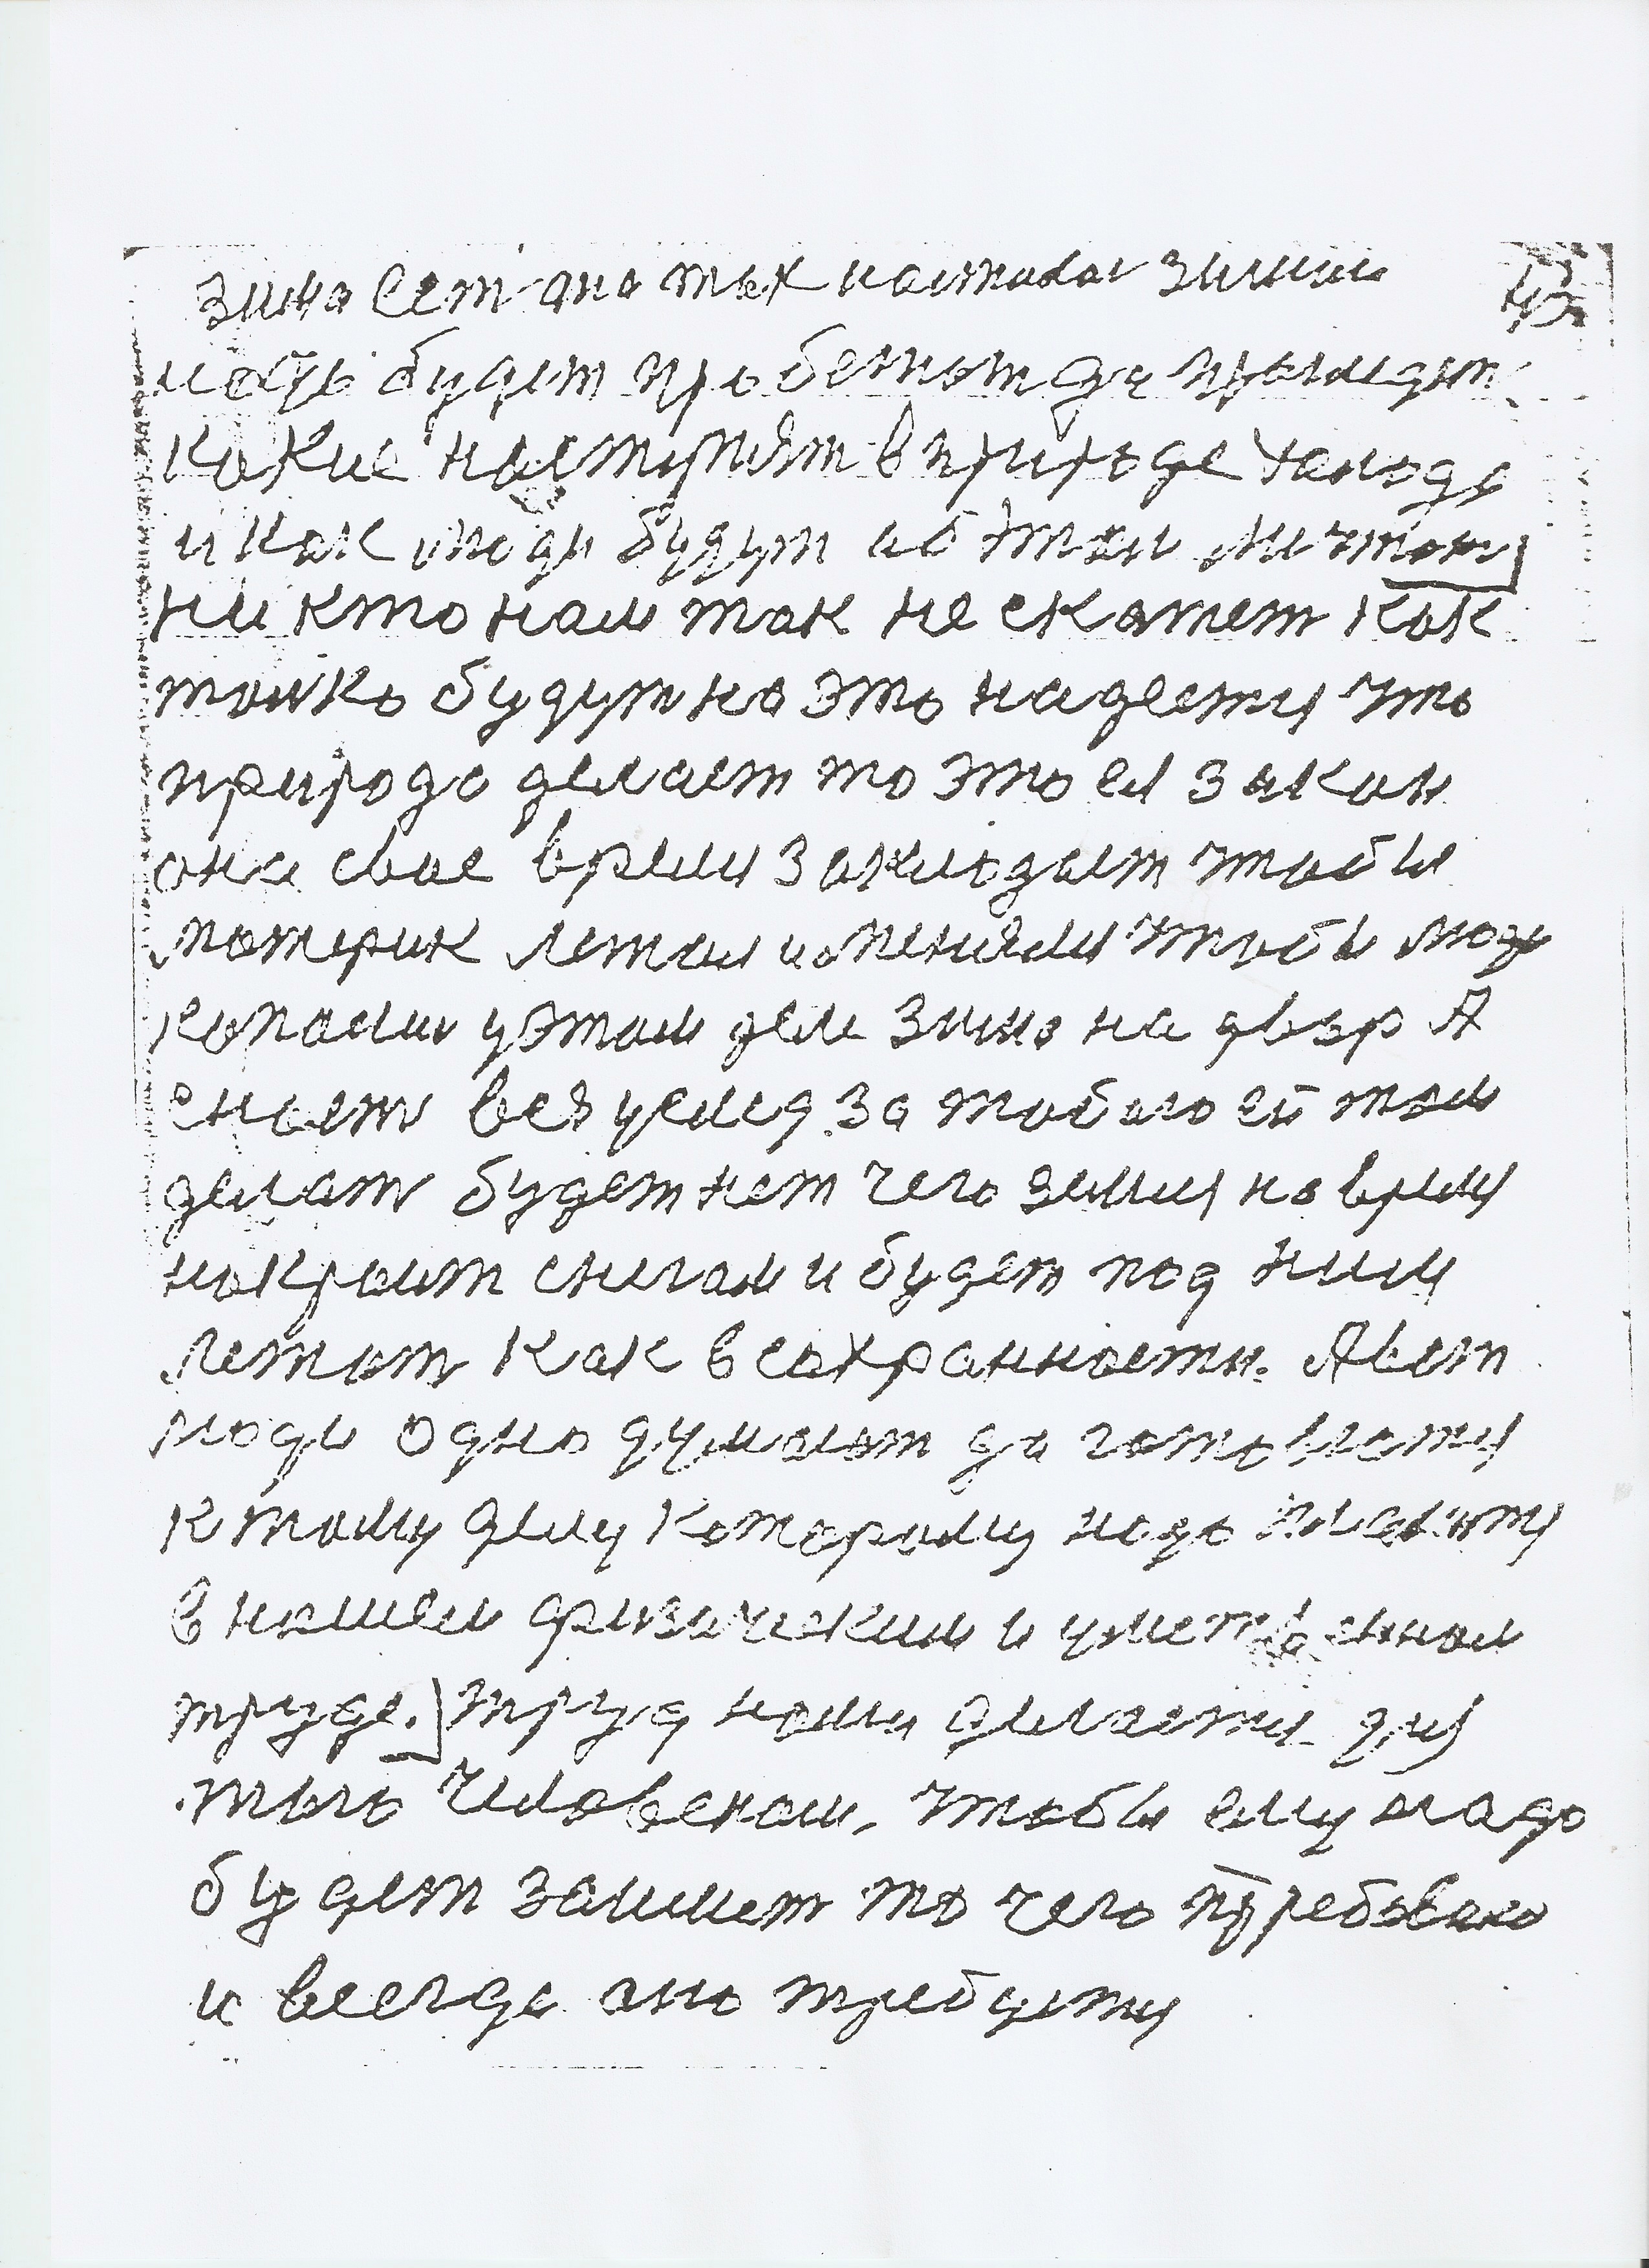 зима есть она тых настоявоя зимии
надь будет проделпот да проидет
какие наступят в природе холода
и как люди будут об этом мичтат
ни кто нам так не скажет как
толко будут на это надеятся что
природа делает то это ея закон
она свое время закладает чтобы
материк летом исменяли чтобы люди
копались у этом деле зима на двор А
снает без уследя за тобаю ей там
делат будет нет чего землия на время
накроит снегом и будет под ним
лежат как в сохранности. А вот
люди одно думают да готовятся
к тому делу которому надо
в нашем физическим и умственном
труде. труд наш делается для
тыго чиловеком, чтобы ему надо
будет запишет то чего требовано
и всегда оно требуется
43